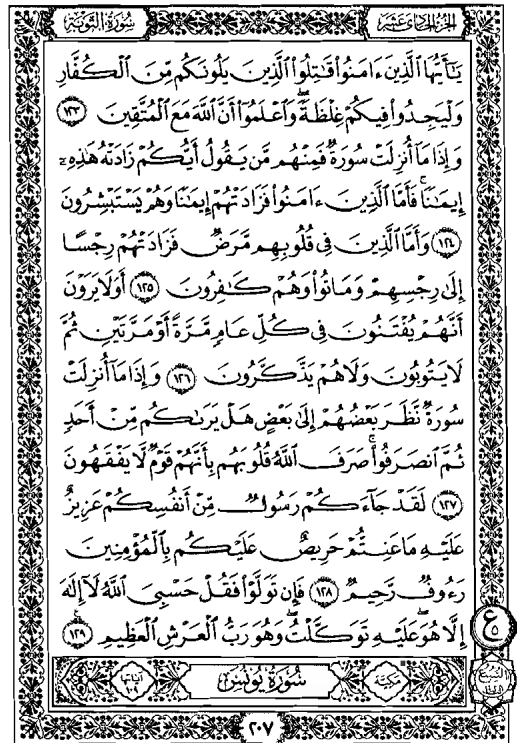 الجزء الحادي عشر
سورة التوبة
يَٰٓأَيُّهَا ٱلَّذِينَ ءَامَنُوا۟ قَٰتِلُوا۟ ٱلَّذِينَ يَلُونَكُم مِّنَ ٱلْكُفَّارِ
وَلْيَجِدُوا۟ فِيكُمْ غِلْظَةً ۚ وَٱعْلَمُوٓا۟ أَنَّ ٱللَّهَ مَعَ ٱلْمُتَّقِينَ ١٢٣
وَإِذَا مَآ أُنزِلَتْ سُورَةٌ فَمِنْهُم مَّن يَقُولُ أَيُّكُمْ زَادَتْهُ هَٰذِهِۦٓ
إِيمَٰنًا ۚ فَأَمَّا ٱلَّذِينَ ءَامَنُوا۟ فَزَادَتْهُمْ إِيمَٰنًا وَهُمْ يَسْتَبْشِرُونَ
١٢٤ وَأَمَّا ٱلَّذِينَ فِى قُلُوبِهِم مَّرَضٌ فَزَادَتْهُمْ رِجْسًا
إِلَىٰ رِجْسِهِمْ وَمَاتُوا۟ وَهُمْ كَٰفِرُونَ ١٢٥ أَوَلَا يَرَوْنَ
أَنَّهُمْ يُفْتَنُونَ فِى كُلِّ عَامٍ مَّرَّةً أَوْ مَرَّتَيْنِ ثُمَّ
لَا يَتُوبُونَ وَلَا هُمْ يَذَّكَّرُونَ ١٢٦ وَإِذَا مَآ أُنزِلَتْ
سُورَةٌ نَّظَرَ بَعْضُهُمْ إِلَىٰ بَعْضٍ هَلْ يَرَىٰكُم مِّنْ أَحَدٍ
ثُمَّ ٱنصَرَفُوا۟ ۚ صَرَفَ ٱللَّهُ قُلُوبَهُم بِأَنَّهُمْ قَوْمٌ لَّا يَفْقَهُونَ
١٢٧ لَقَدْ جَآءَكُمْ رَسُولٌ مِّنْ أَنفُسِكُمْ عَزِيزٌ
عَلَيْهِ مَا عَنِتُّمْ حَرِيصٌ عَلَيْكُم بِٱلْمُؤْمِنِينَ
رَءُوفٌ رَّحِيمٌ ١٢٨ فَإِن تَوَلَّوْا۟ فَقُلْ حَسْبِىَ ٱللَّهُ لَآ إِلَٰهَ
إِلَّا هُوَ ۖ عَلَيْهِ تَوَكَّلْتُ ۖ وَهُوَ رَبُّ ٱلْعَرْشِ ٱلْعَظِيمِ ١٢٩
مكية
سورة يونس
آياتها ١٠٩
٢٠٧